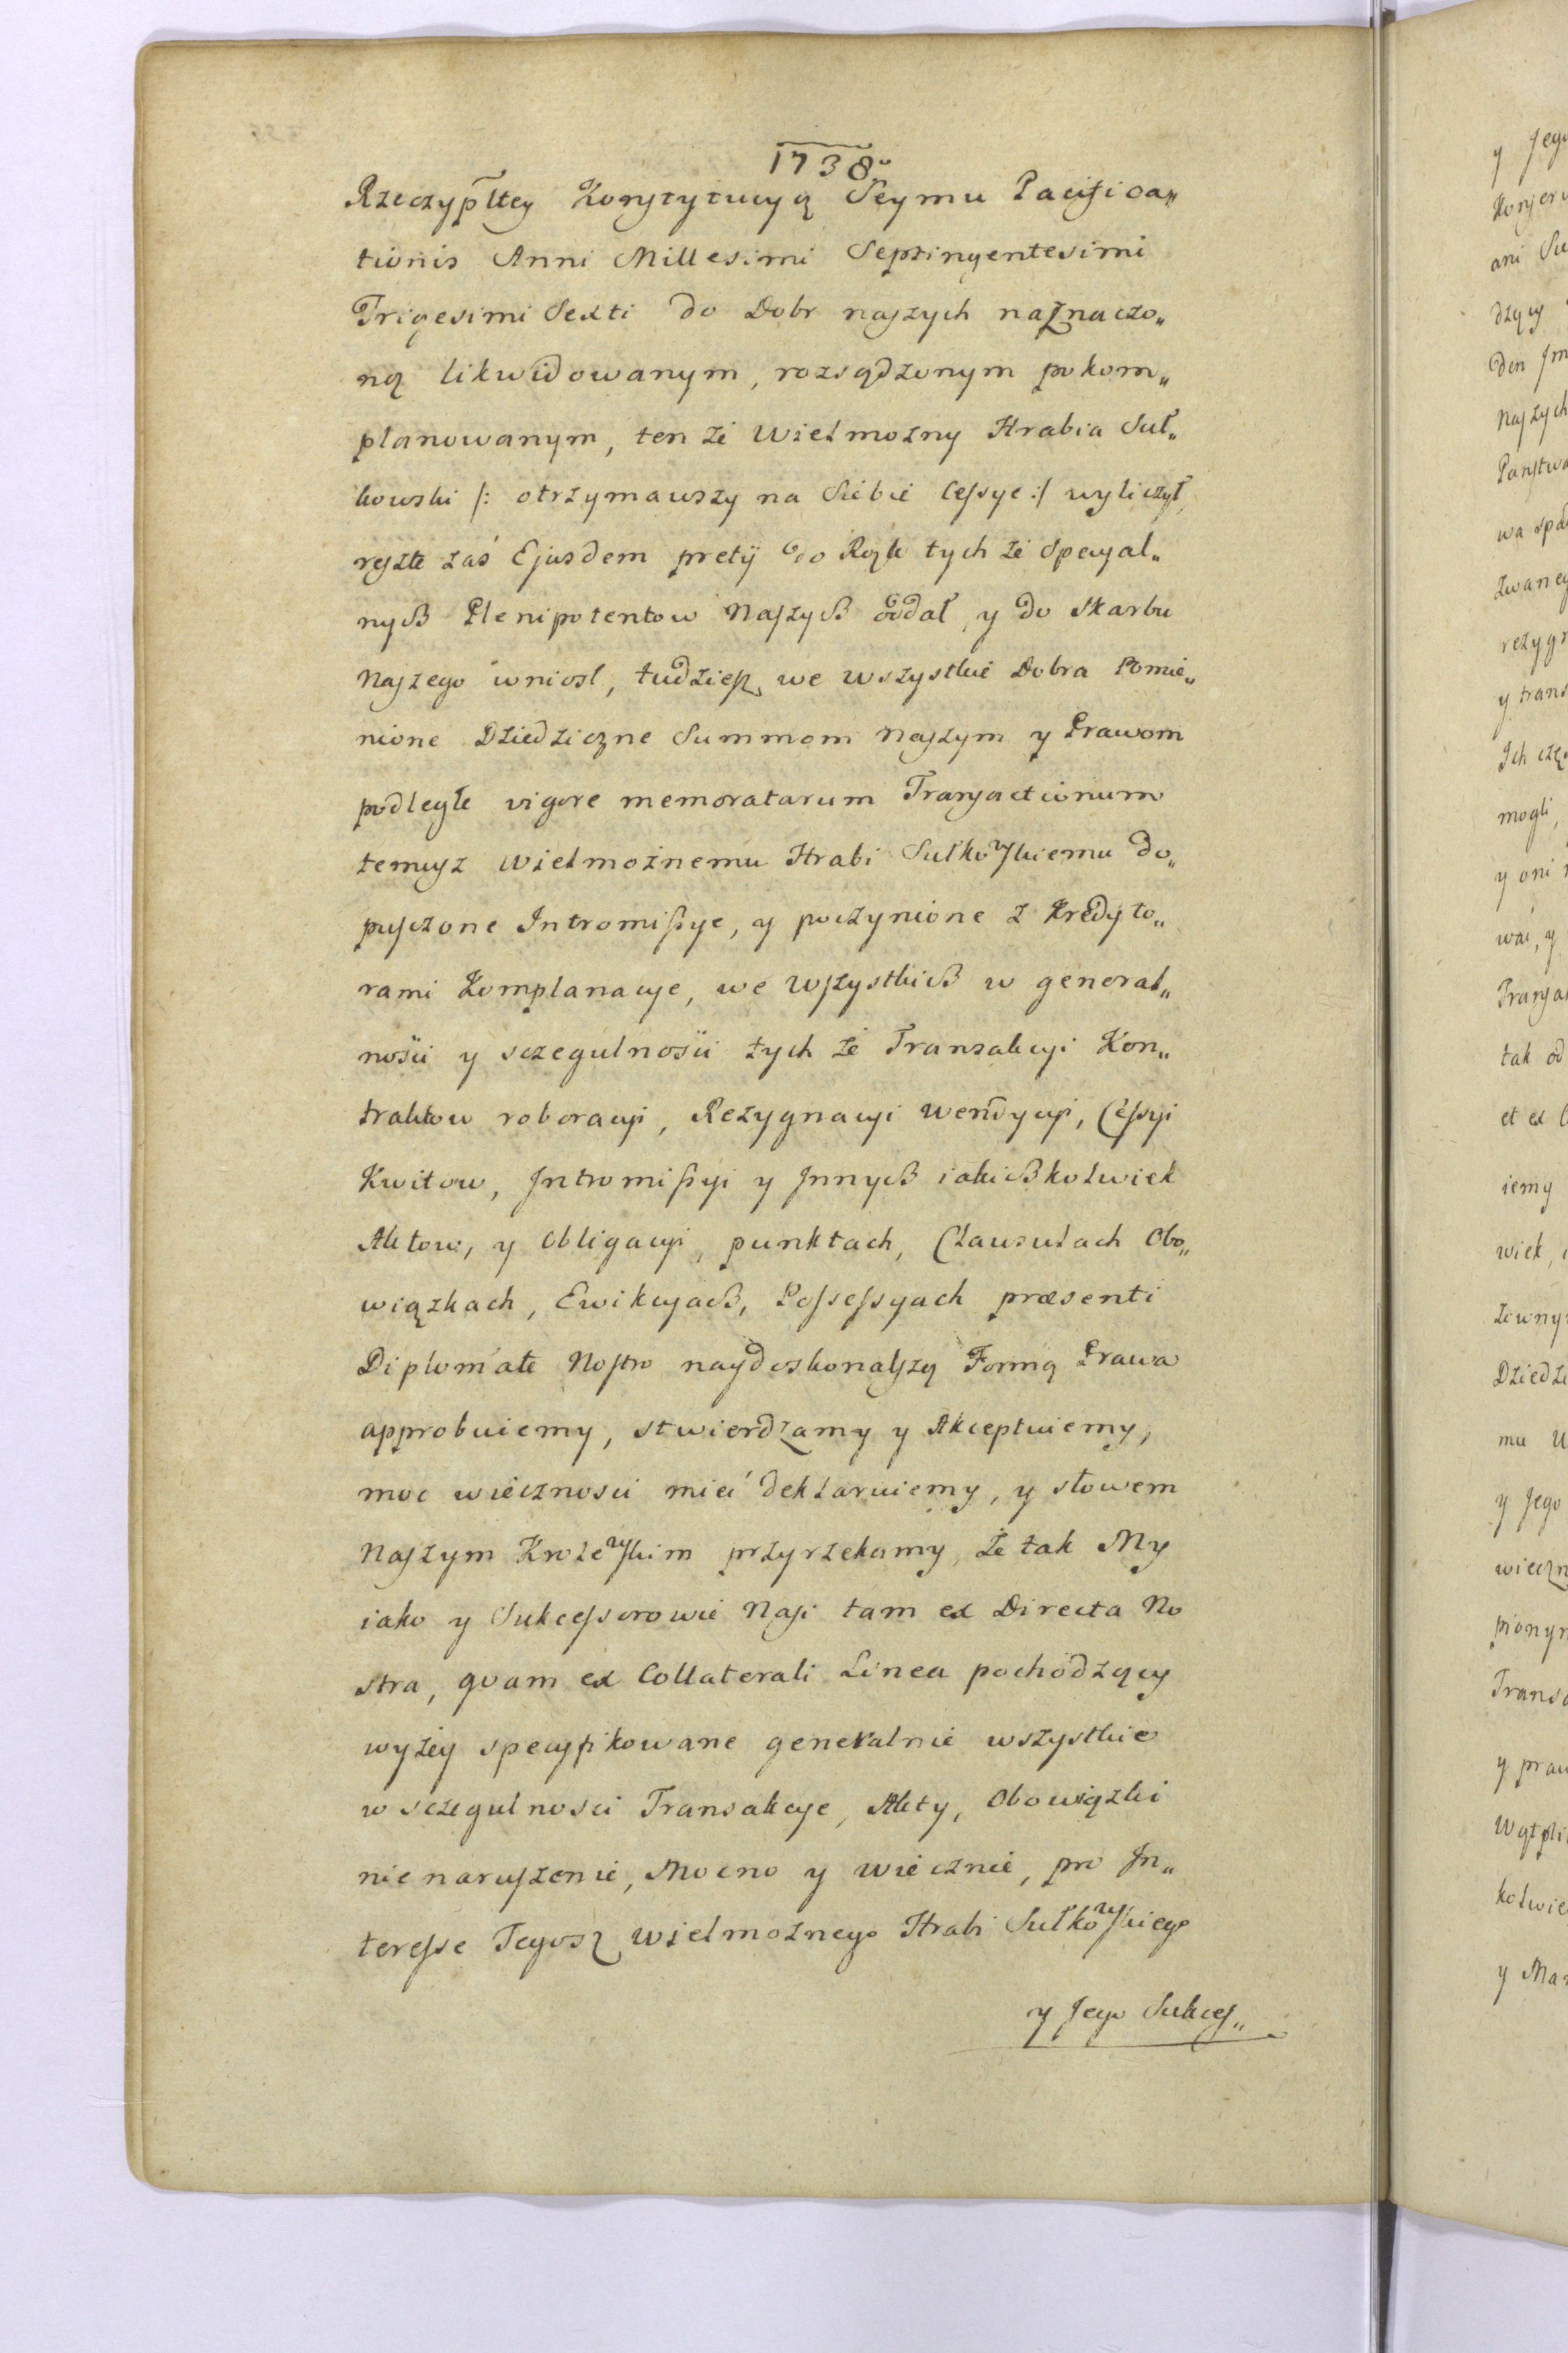 1738º
Rzeczyplltey Konstytucyą Seymu Pacifica„
tionis Anni Millesimi Septingentesimi
Trigesimi Sexti do Dobr naszych naznaczo„
ną likwidowanym, rozsądzonym pokom„
planowanym, ten że Wielmożny Hrabia Suł„
kowski /: otrzymawszy na Siebie Cessye :/ wyliczył,
resztę zaś Ejusdem pretij do Rąk tych że Specyal„
nych Plenipotentow Naszych oddał, y do Skarbu
Naszego wniosł, tudziesz we wszystkie Dobra Pomie„
nione Dziedziczne Summom Naszym y Prawom
podległe vigore memoratarum Transactionum
temusz Wielmożnemu Hrabi Sułkowskiemu do„
pusczone Intromissye, y poczynione z Kredyto„
rami Komplanacye, we Wszystkich w general„
nosci y sczegulnosci tych że Transakcyi Kon„
traktow roboracyi, Rezygnacyi Wendycyi, Cessyi
Kwitow, Intromissyi y Innych iakichkolwiek
Aktow, y Obligacyi, punktach, Clausulach Obo„
wiązkach, Ewikcyach, Possessyach præsenti
Diplomate Nostro naydoskonalszą Formą Prawa
approbuiemy, stwierdzamy y Akceptuiemy,
moc wiecznosci mieć deklaruiemy, y słowem
Naszym Krolewskim przyrzekamy, że tak My
iako y Sukcessorowie Nasi tam ex Directa No
stra, quam ex Collaterali Linea pochodzący
wyżey specyfikowane generalnie wszystkie
w sczegulnosci Transakcye, Akty, Obowiązki
nienaruszenie, Mocno y wiecznie, pro In„
teresse Tegosz Wielmożnego Hrabi Sułkowskiego
y Jego Sukces„
y Jego
ani
dzący
den
Naszych
wa
y trans
Ich
mogli,
y oni
wać, y
tak od
et ex
iemy
wiek,
mu
y Jego
Transa
y praw
kolwie
y Mar